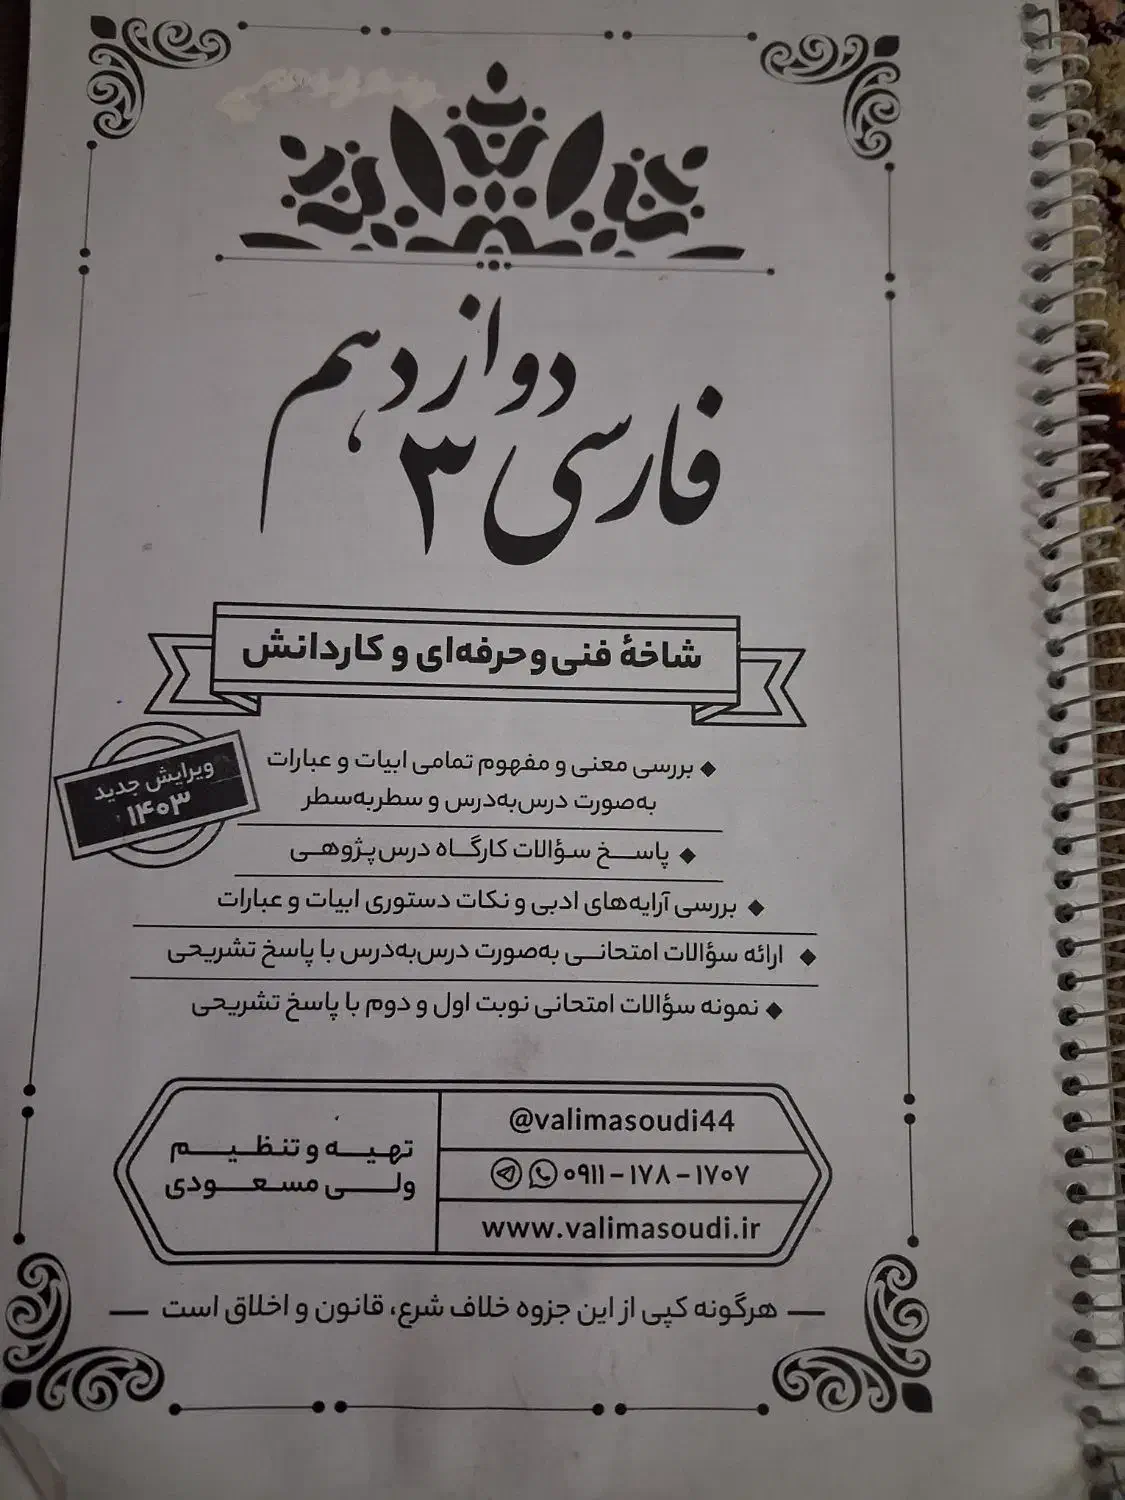 فارسی ۳ دوازدهم
شاخهٔ فنی‌وحرفه‌ای و کاردانش
ویرایش جدید
۱۴۰۳
بررسی معنی و مفهوم تمامی ابیات و عبارات
به‌صورت درس‌به‌درس و سطربه‌سطر
پاسخ سؤالات کارگاه درس‌پژوهی
بررسی آرایه‌های ادبی و نکات دستوری ابیات و عبارات
ارائه سؤالات امتحانی به‌صورت درس‌به‌درس با پاسخ تشریحی
نمونه سؤالات امتحانی نوبت اول و دوم با پاسخ تشریحی
تهیه و تنظیم
ولی مسعودی
@valimasoudi44
۰۹۱۱-۱۷۸-۱۷۰۷
www.valimasoudi.ir
هرگونه کپی از این جزوه خلاف شرع، قانون و اخلاق است